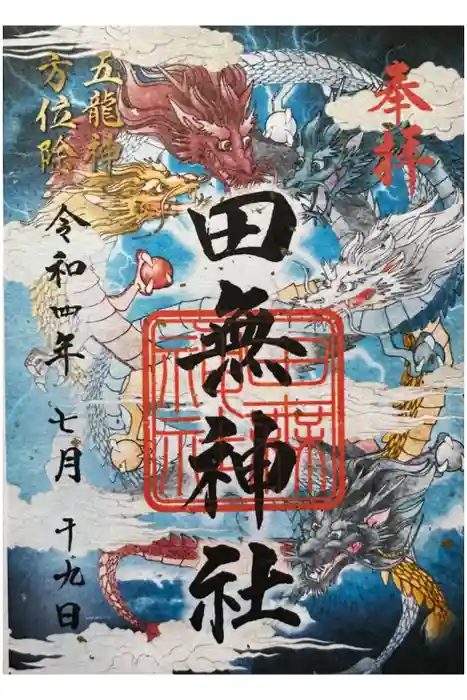 奉拝
田無神社
五龍神
方位除
令和四年 七月 十九日
田無神社